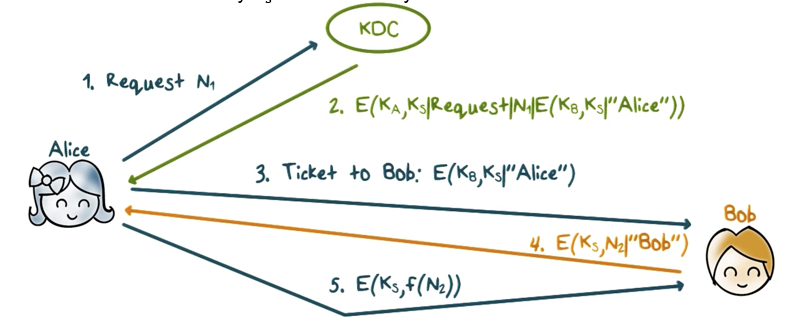 KDC
1. Request N₁
2. E(K_A,K_S|Request|N₁|E(K_B,K_S|"Alice"))
Alice
3. Ticket to Bob: E(K_B,K_S|"Alice")
Bob
4. E(K_S,N₂|"Bob")
5. E(K_S,f(N₂))